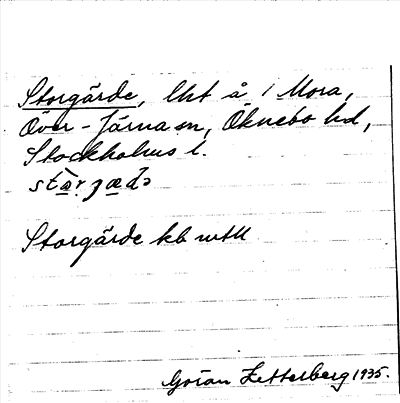 Storgärde, lht å i Mora,
Över-Järna sn, Öknebo hd,
Stockholms l.
Storgärde kb
Göran Zetterberg 1935.